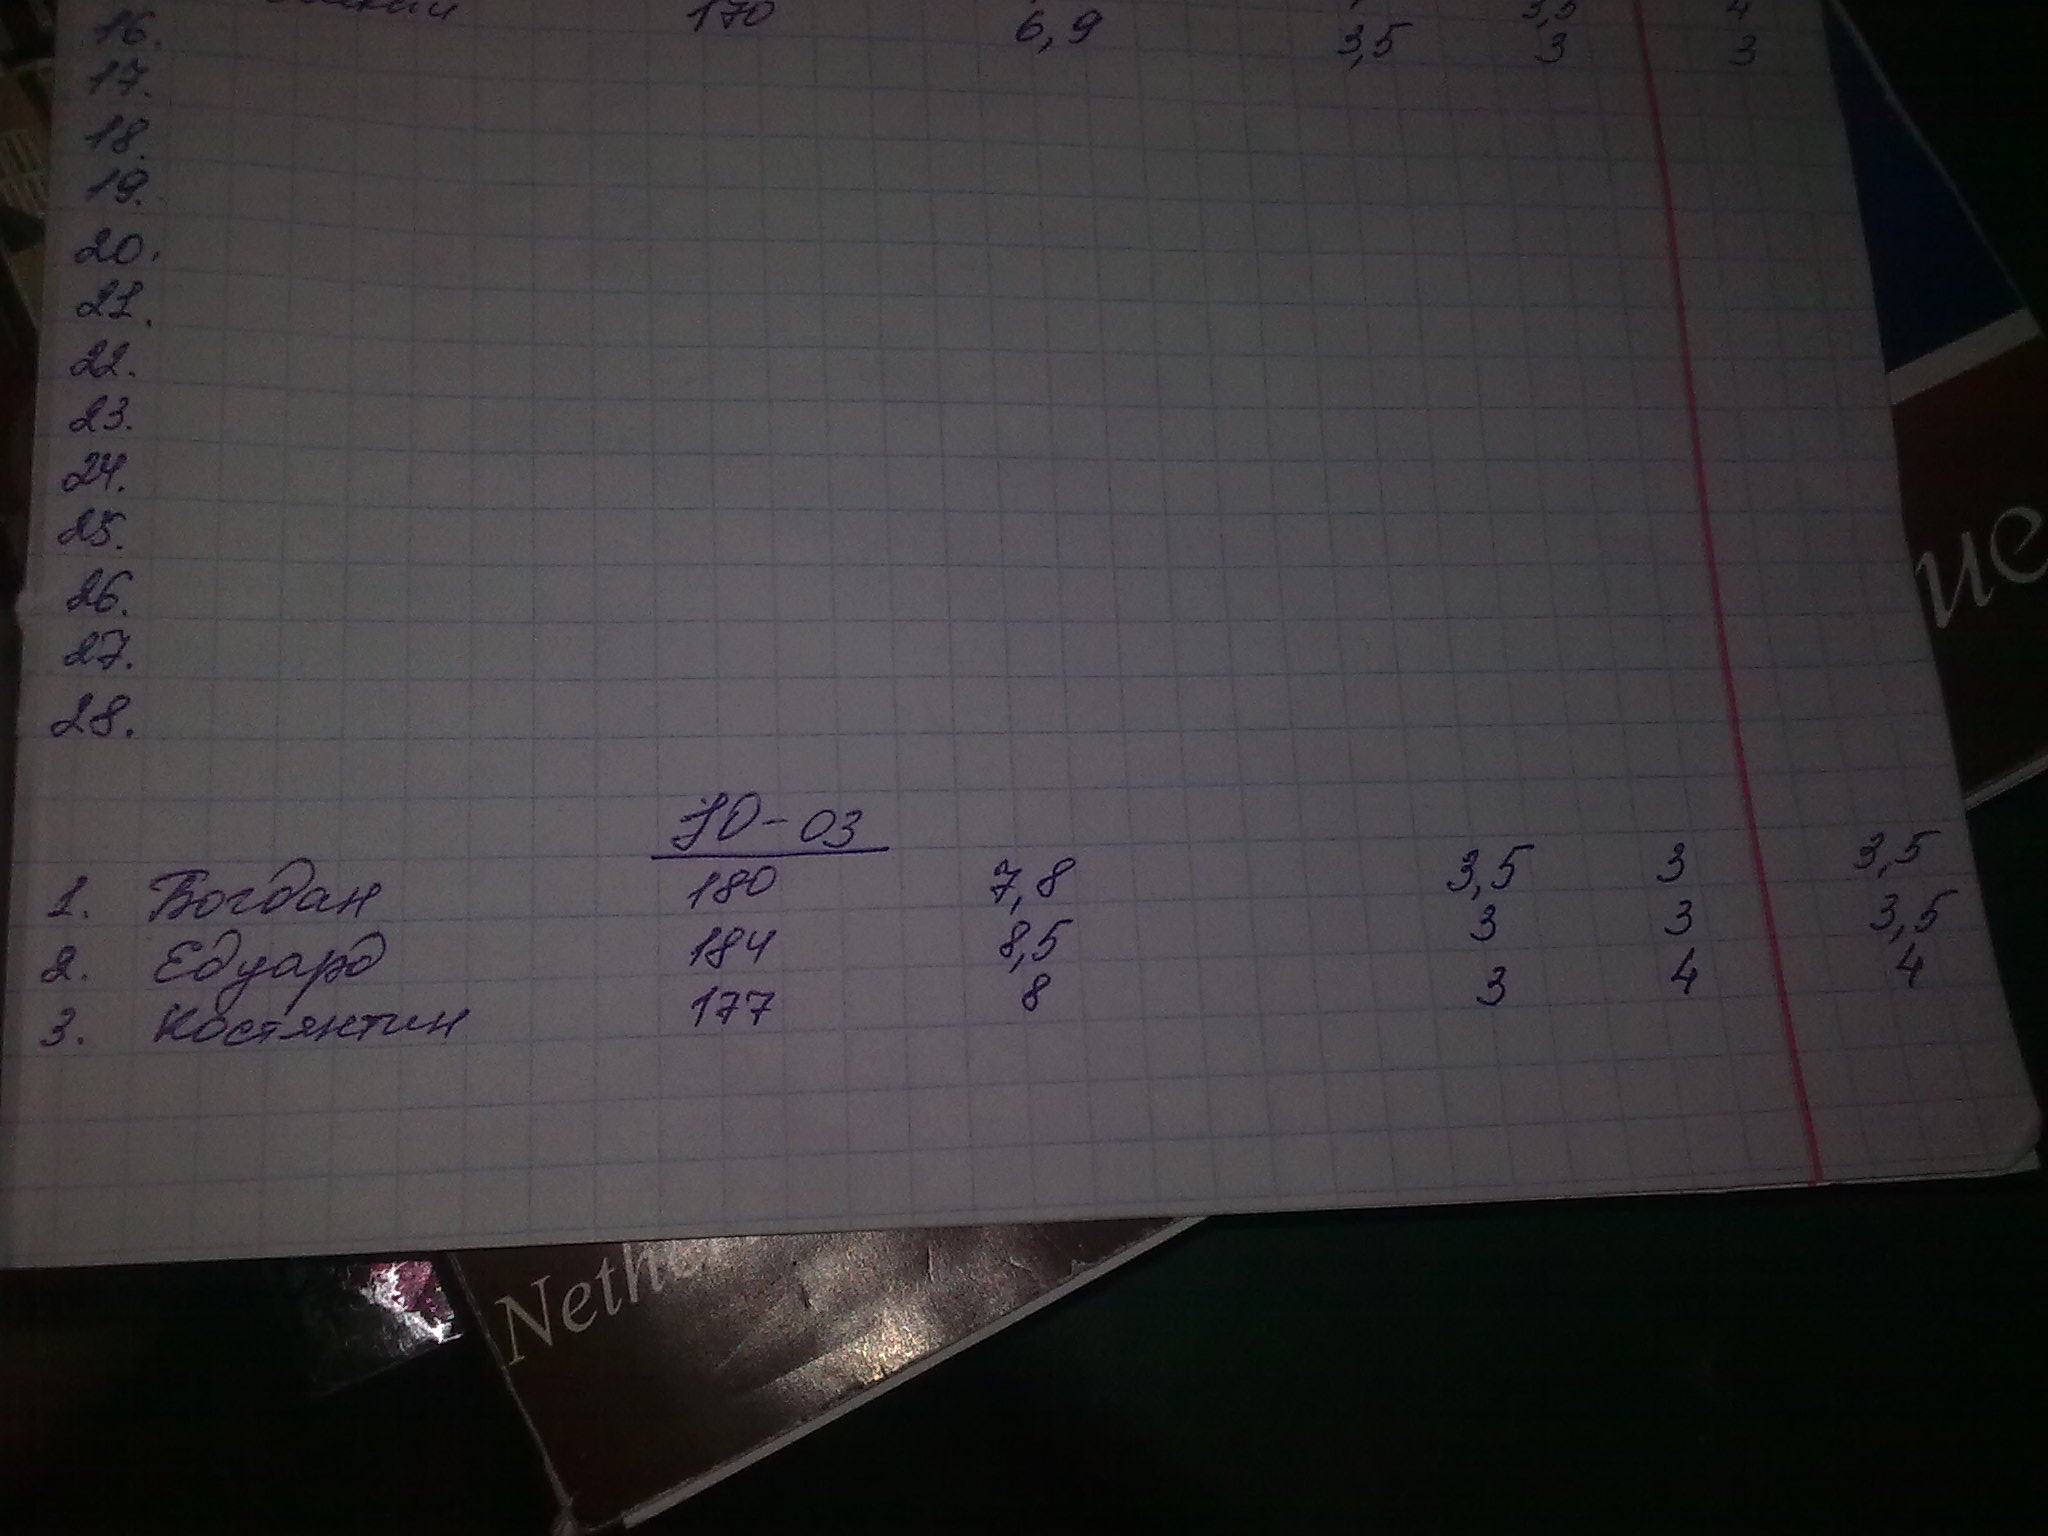 170 3,5 4
16. 6,9 3,5 3 3
17.
18.
19.
20.
21.
22.
23.
24.
25.
26.
27.
28.
Ю-03
1. Богдан 180 7,8 3,5 3 3,5
2. Едуард 184 8,5 3 3 3,5
3. Костянтин 177 8 3 4 4
Nethe
ue